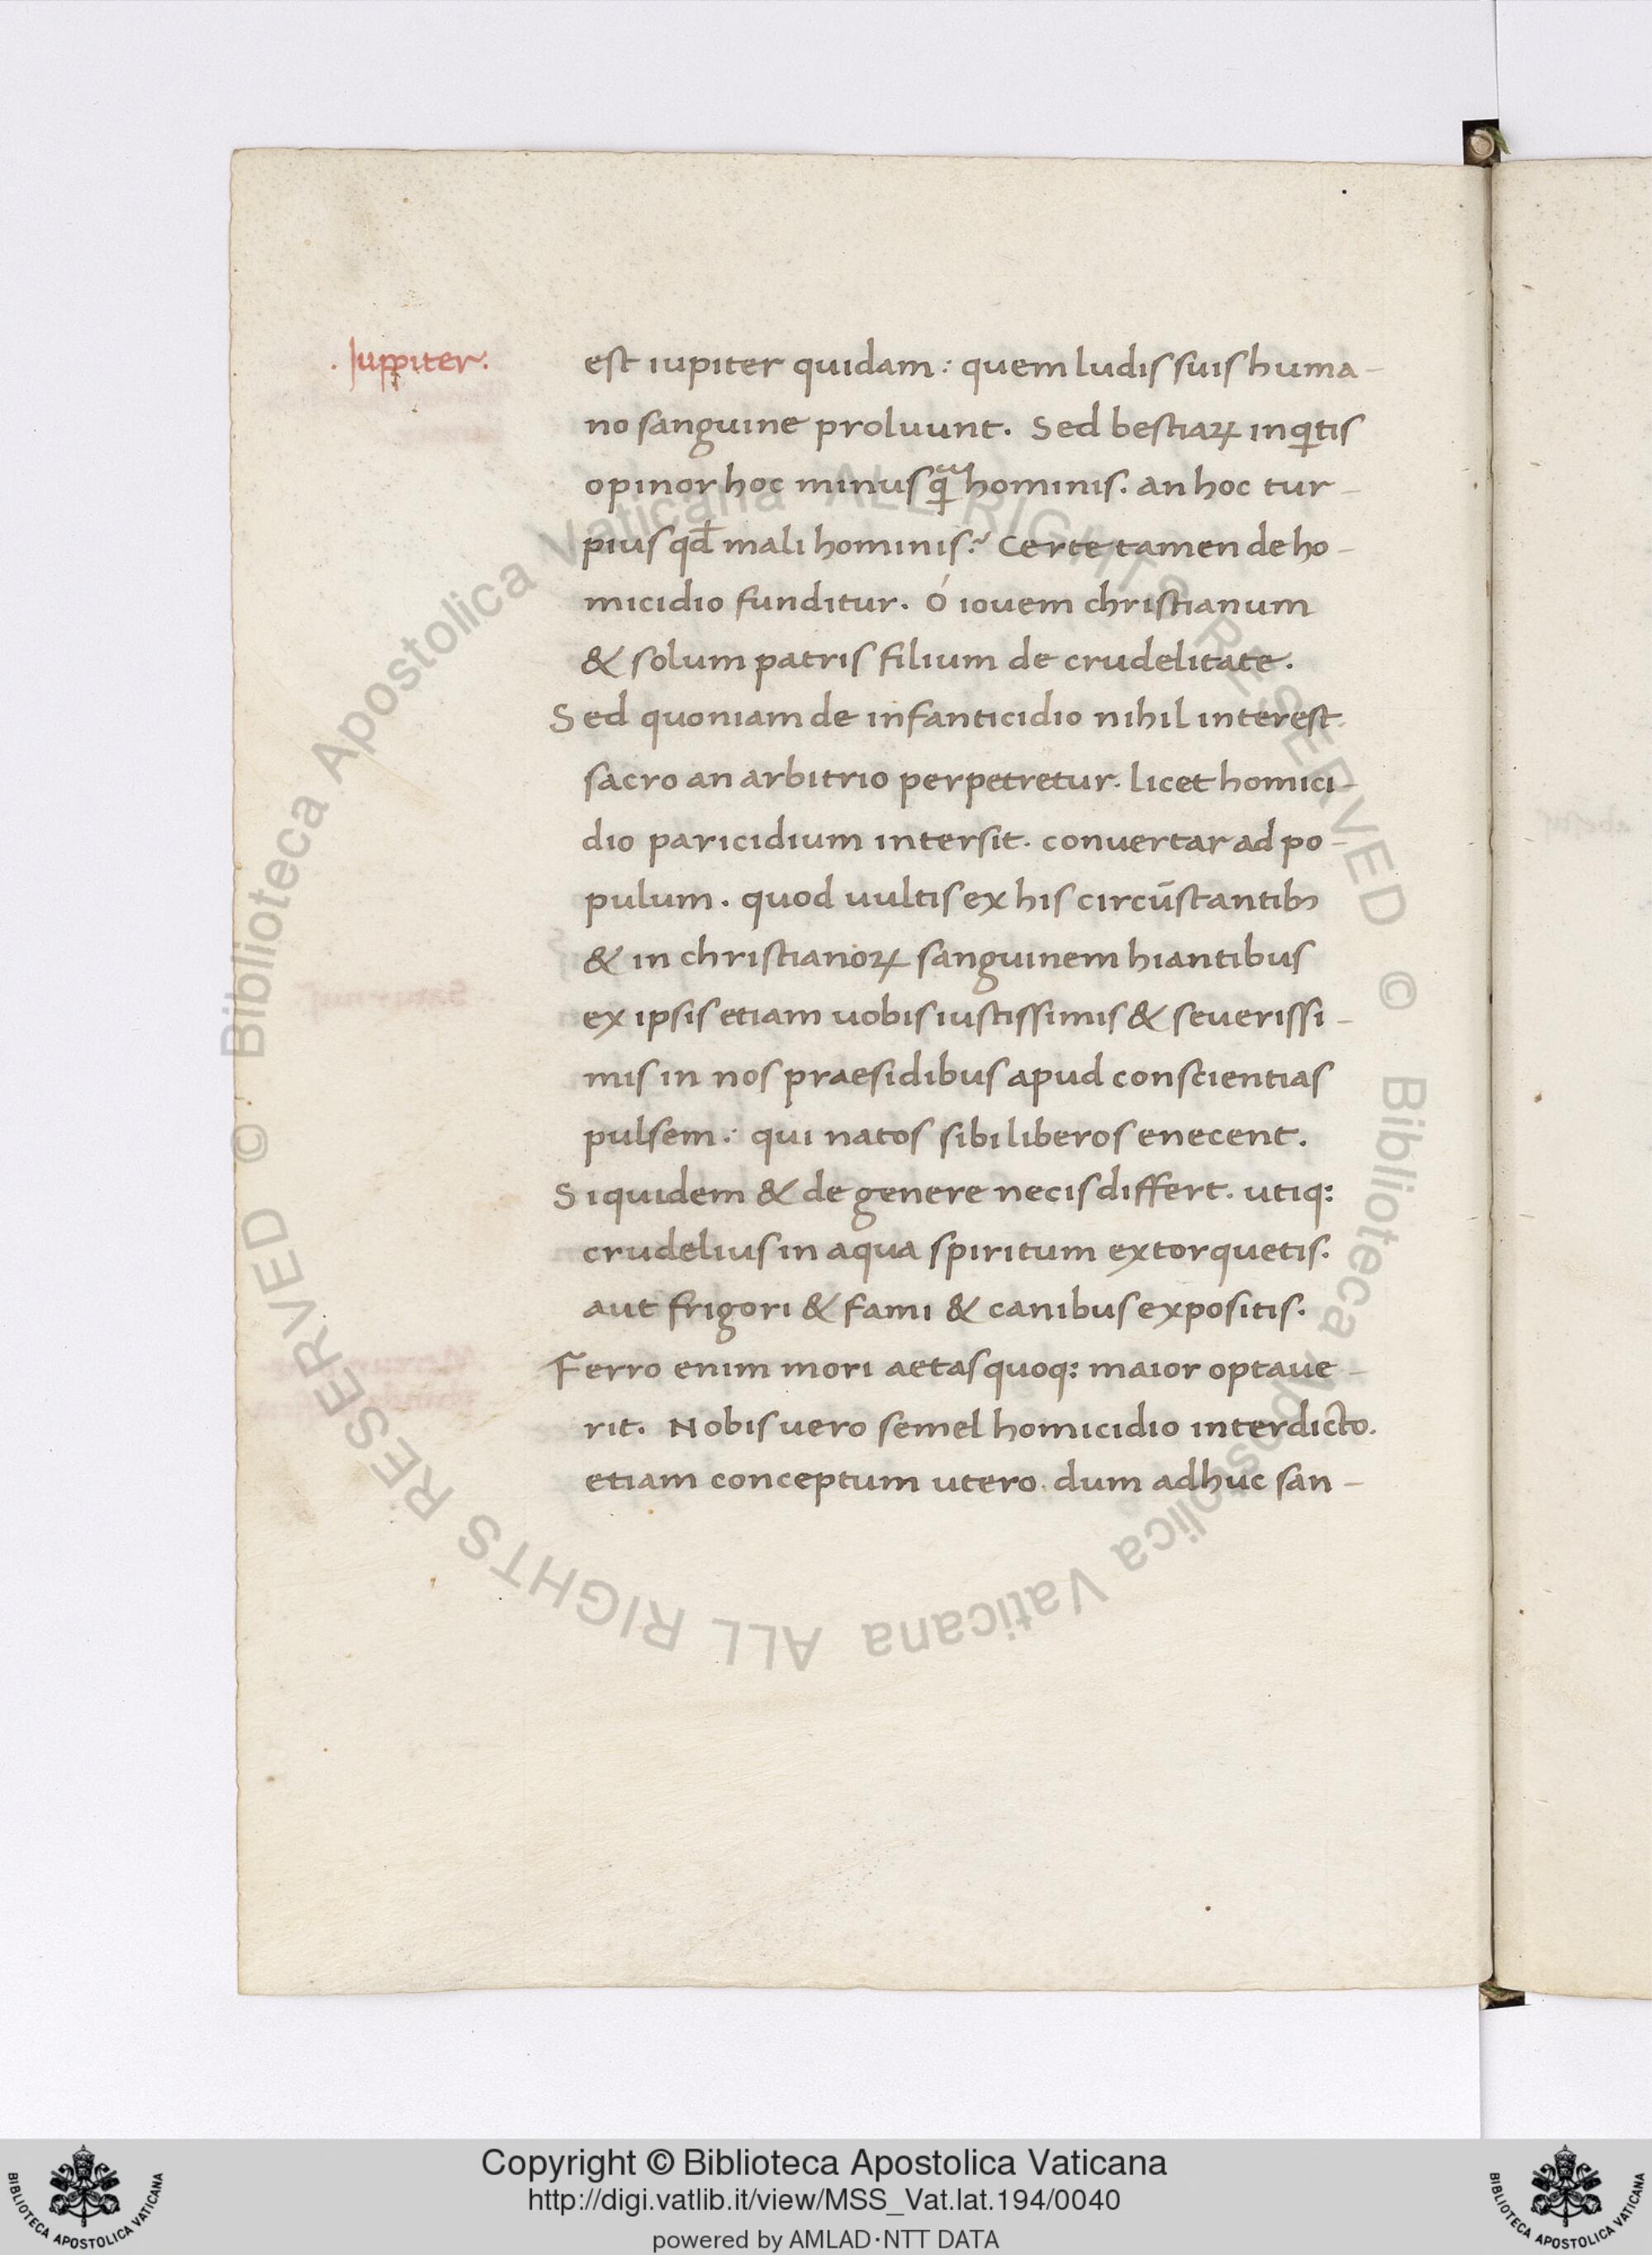 . Juppiter.
est iupiter quidam : quem ludis suis huma-
no sanguine proluunt. Sed bestiaꝝ inqͥtis
opinor hoc minus qͣꝫ hominis. an hoc tur-
pius qđ mali hominis? Certe tamen de ho-
micidio funditur. ó iouem christianum
& solum patris filium de crudelitate.
Sed quoniam de infanticidio nihil interest.
sacro an arbitrio perpetretur. licet homici-
dio paricidium intersit. conuertar ad po-
pulum. quod uultis ex his circūstantibꝫ
& in christianoꝝ sanguinem hiantibus
ex ipsis etiam uobis iustissimis & seuerissi-
mis in nos praesidibus apud conscientias
pulsem : qui natos sibi liberos enecent.
Siquidem & de genere necis differt. utiq:
crudelius in aqua spiritum extorquetis.
aut frigori & fami & canibus expositis.
Ferro enim mori aetas quoq: maior optaue-
rit. Nobis uero semel homicidio interdicto.
etiam conceptum utero. dum adhuc san-
© Biblioteca Apostolica Vaticana ALL RIGHTS RESERVED © Biblioteca Apostolica Vaticana ALL RIGHTS RESERVED
Copyright © Biblioteca Apostolica Vaticana
http://digi.vatlib.it/view/MSS_Vat.lat.194/0040
powered by AMLAD·NTT DATA
BIBLIOTECA APOSTOLICA VATICANA
BIBLIOTECA APOSTOLICA VATICANA